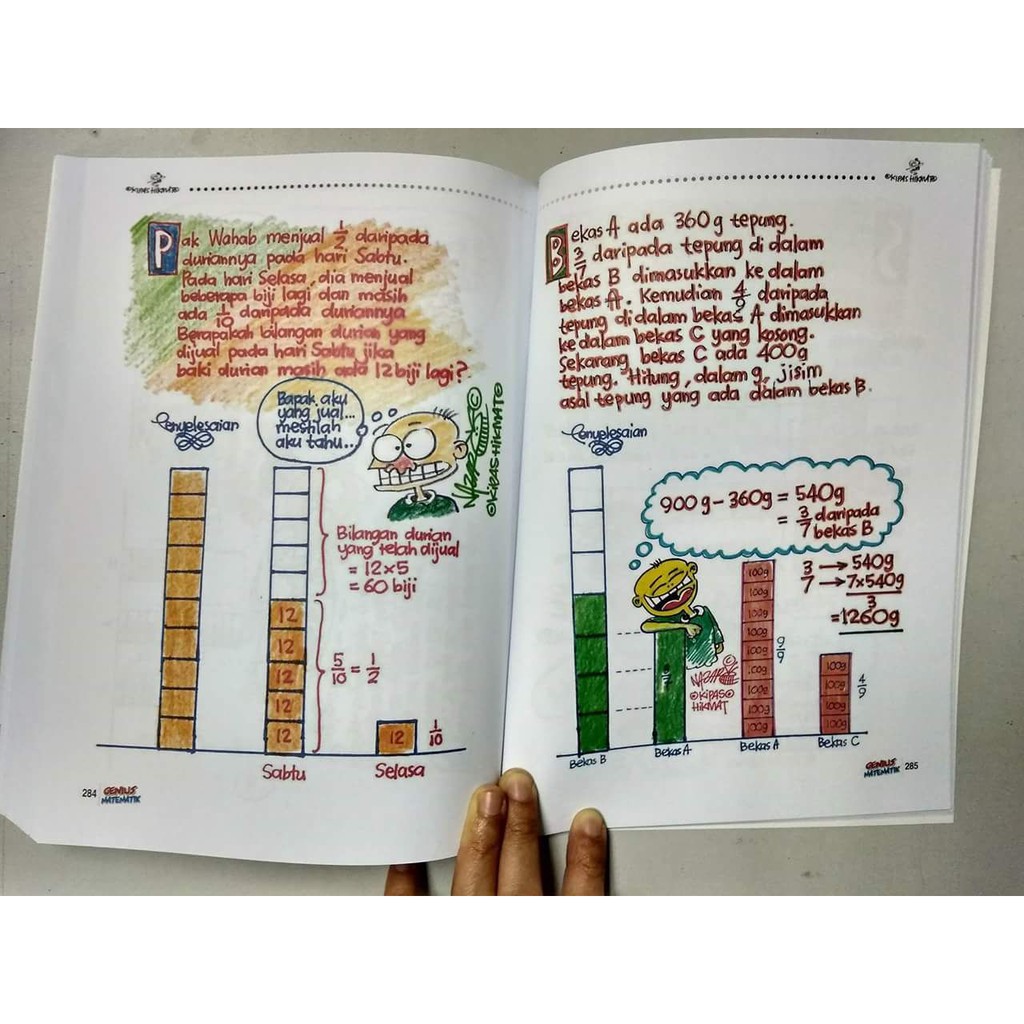 ©KIPAS HIKMAT®
Pak Wahab menjual 1/2 daripada
duriannya pada hari Sabtu.
Pada hari Selasa, dia menjual
beberapa biji lagi dan masih
ada 1/10 daripada duriannya
Berapakah bilangan durian yang
dijual pada hari Sabtu jika
baki durian masih ada 12 biji lagi?
Penyelesaian
Bapak, aku
yang jual...
mestilah
aku tahu..
©KIPAS-HIKMAT®
Bilangan durian
yang telah dijual
= 12×5
= 60 biji
12
12
12
12
12
5/10 = 1/2
12
1/10
Sabtu
Selasa
284
GENIUS
MATEMATIK
©KIPAS HIKMAT®
Bekas A ada 360g tepung.
3/7 daripada tepung di dalam
bekas B dimasukkan ke dalam
bekas A. Kemudian 4/9 daripada
tepung di dalam bekas A dimasukkan
ke dalam bekas C yang kosong.
Sekarang bekas C ada 400g
tepung. Hitung, dalam g, jisim
asal tepung yang ada dalam bekas B.
Penyelesaian
900g - 360g = 540g
= 3/7 daripada
bekas B
3 → 540g
7 → 7×540g
3
= 1260g
100g
100g
100g
100g
100g
100g
100g
100g
100g
9/9
100g
100g
100g
100g
4/9
©KIPAS®
HIKMAT
Bekas B
Bekas A
Bekas A
Bekas C
GENIUS
MATEMATIK
285